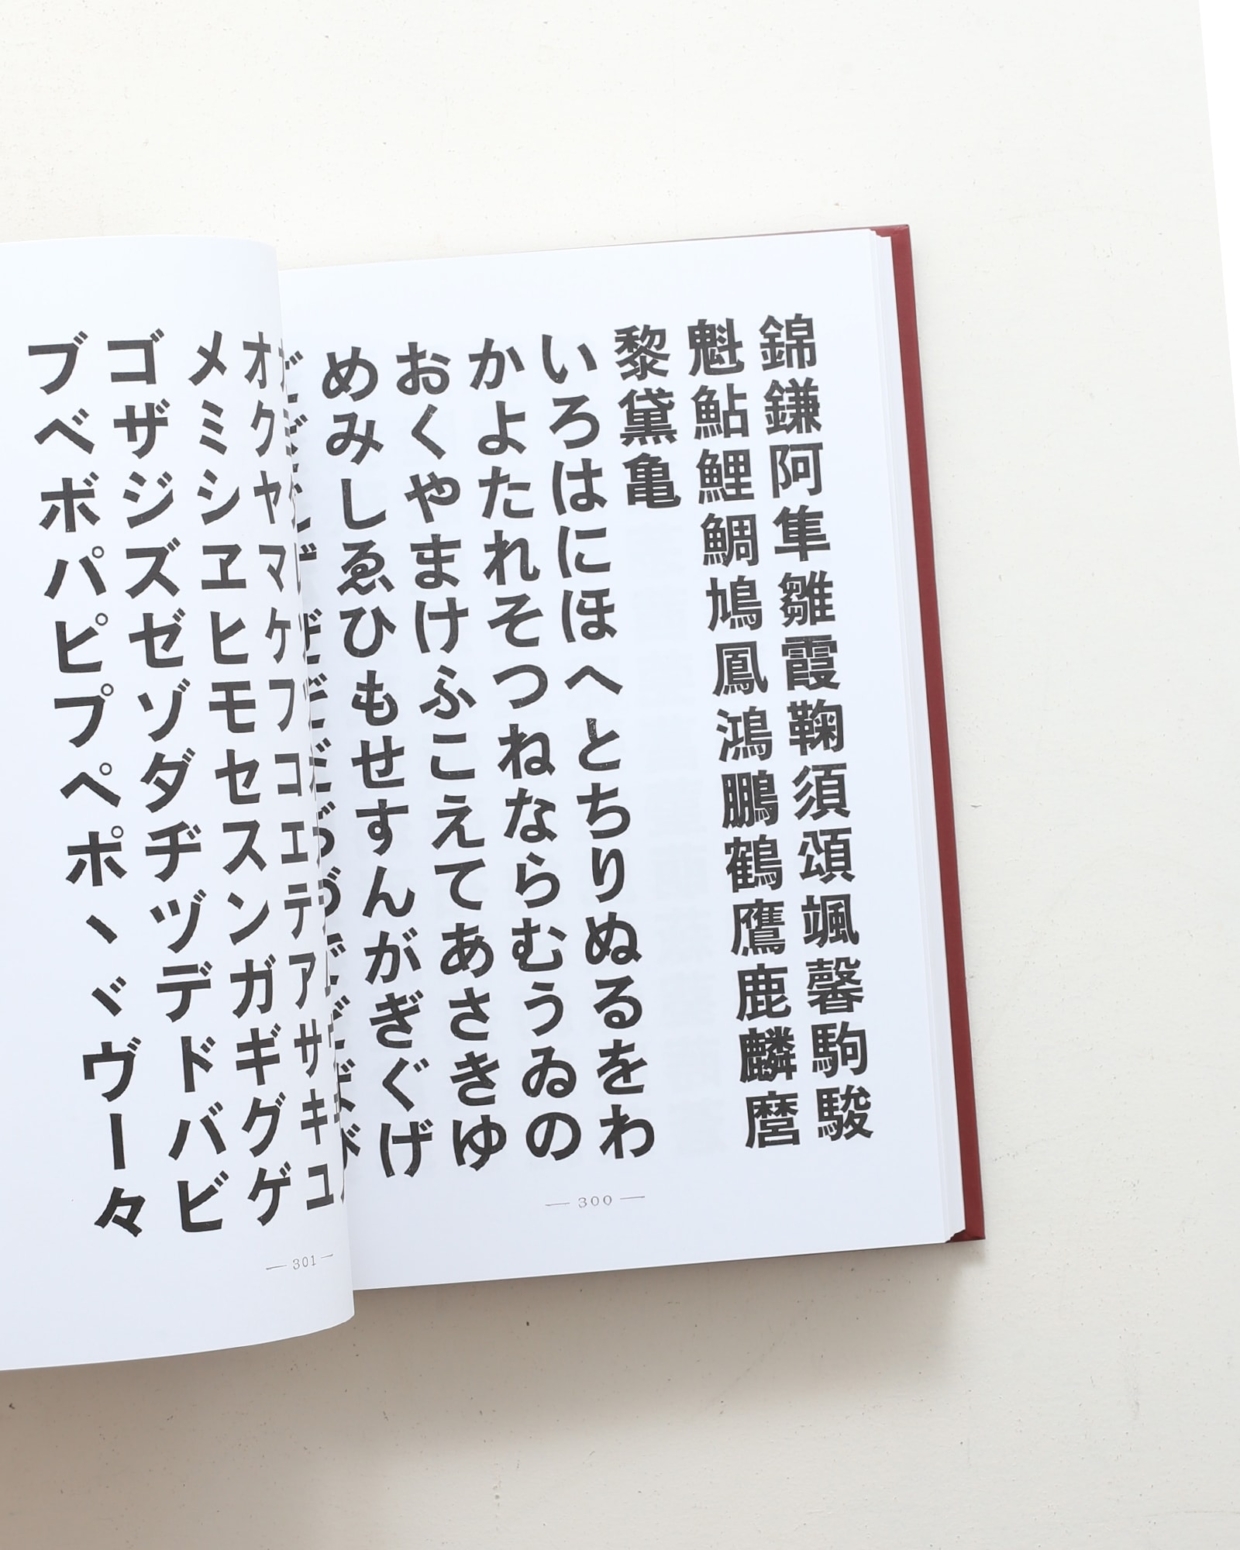 錦鎌阿隼雛霞鞠須頌颯馨駒駿
魁鮎鯉鯛鳩鳳鴻鵬鶴鷹鹿麟麿
黎黛亀
いろはにほへとちりぬるをわ
かよたれそつねならむうゐの
おくやまけふこえてあさきゆ
めみしゑひもせすんがぎぐげ
— 300 —
オクヤマケフコエテアサキユ
メミシヱヒモセスンガギグゲ
ゴザジズゼゾダヂヅデドバビ
ブベボパピプペポヽヾヴー々
— 301 —